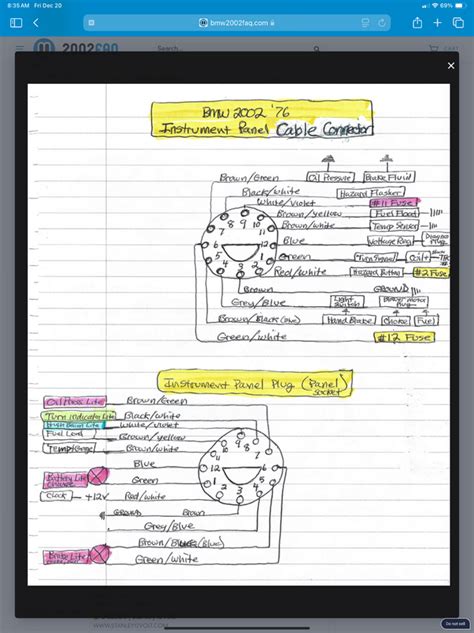 8:35 AM Fri Dec 20
69%
bmw2002faq.com
2002FAQ
Search...
BMW 2002 '76
Instrument Panel Cable Connector
Brown/Green
Oil Pressure
Brake Fluid
Black/white
Hazard Flasher
White/violet
#11 Fuse
Brown/yellow
Fuel Float
Brown/white
Temp Sensor
Blue
Voltage Reg
Diagnos Plug
Green
Turn Signal
Coil+
Red/white
#2 Fuse
Brown
GROUND
Grey/Blue
Light Switch
Blower motor Plug
Brown/Black
Hand Brake
Choke
Fuel
Green/white
#12 Fuse
7 8 9 10 11
6 12
5 4 3 2 1
Instrument Panel Plug (Panel Socket)
Oil Press Lite
Brown/Green
Turn indicator Lite
Black/white
White/violet
Fuel Level
Brown/yellow
Temp Gauge
Brown/white
Blue
Battery Lite
Green
Clock
+12v
Red/white
GROUND
Brown
Grey/Blue
Brown/Black (Blue)
Brake Lite
Green/white
11 10 9 8 7
12 6
1 2 3 4 5
Do not sell